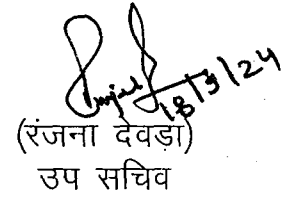 18/3/24
(रंजना देवड़ा)
उप सचिव